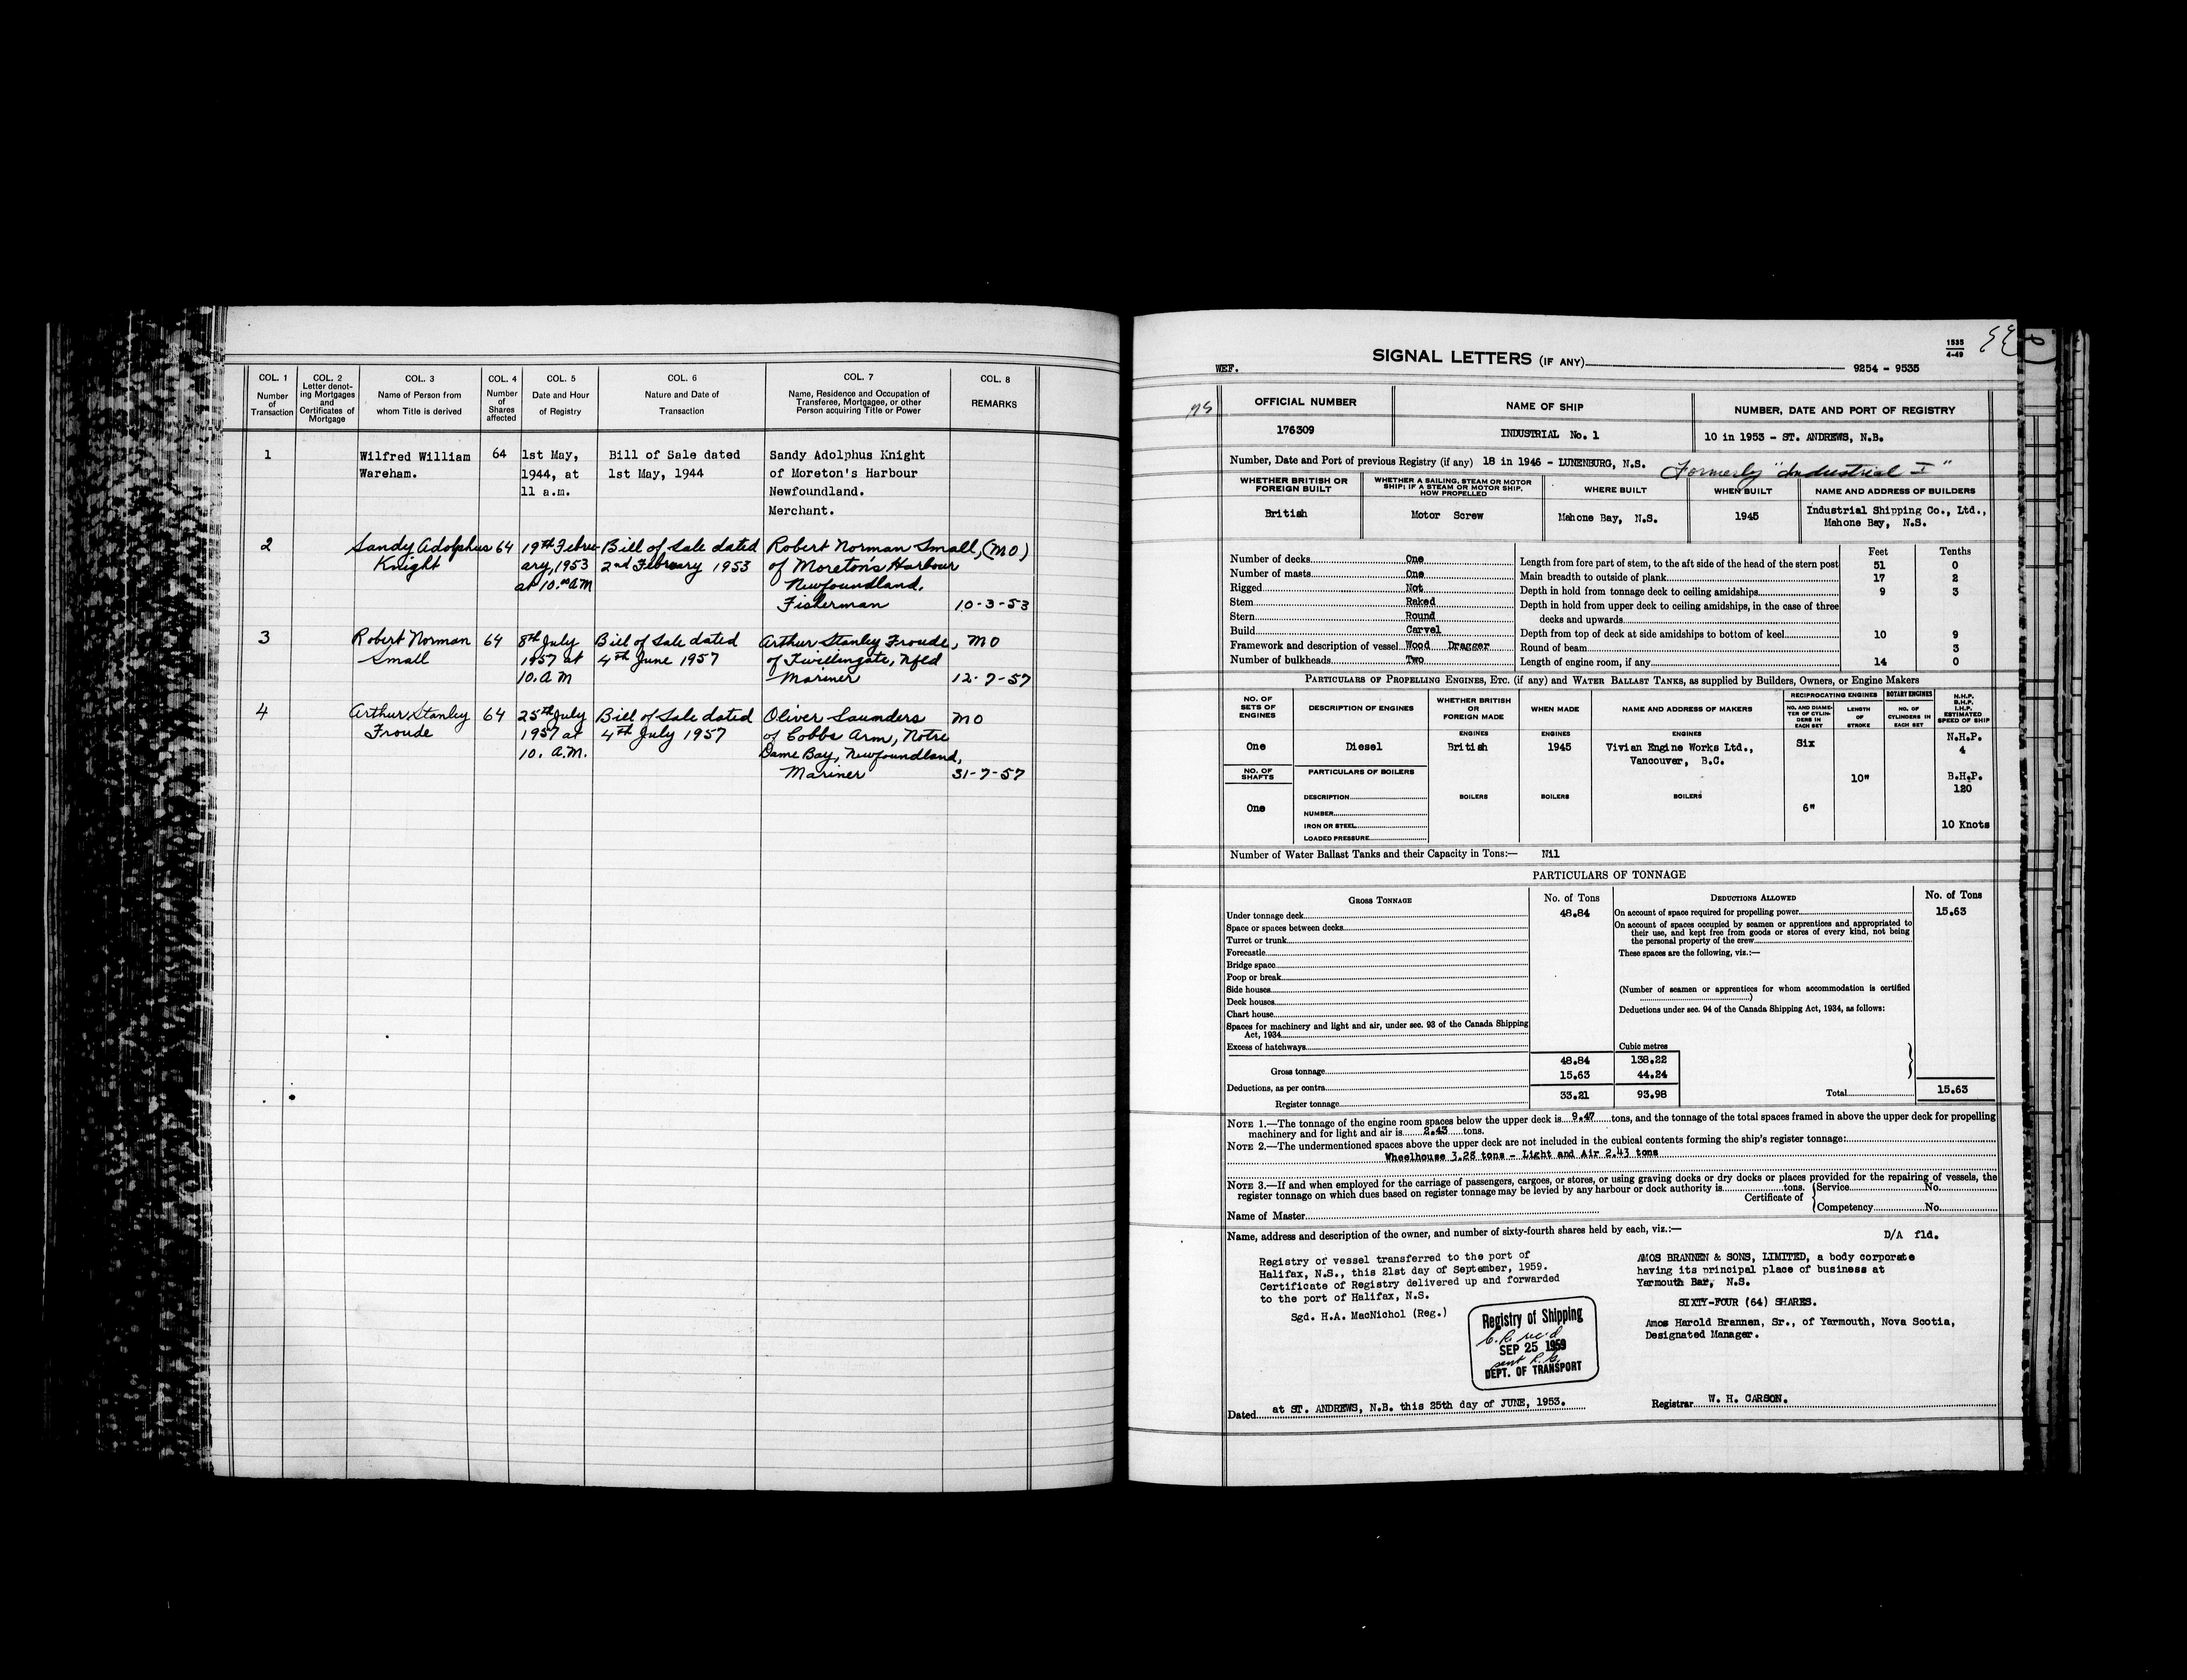 COL. 1
Number
of
Transaction
COL. 2
Letter denot-
ing Mortgages
and
Certificates of
Mortgage
COL. 3
Name of Person from
whom Title is derived
COL. 4
Number
of
Shares
affected
COL. 5
Date and Hour
of Registry
COL. 6
Nature and Date of
Transaction
COL. 7
Name, Residence and Occupation of
Transferee, Mortgagee, or other
Person acquiring Title or Power
COL. 8
REMARKS
1 Wilfred William 64 1st May, Bill of Sale dated Sandy Adolphus Knight
Wareham. 1944, at 1st May, 1944 of Moreton's Harbour
11 a.m. Newfoundland.
Merchant.
2 Sandy Adolphus 64 19th Febru- Bill of Sale dated Robert Norman Small, (MO)
Knight ary, 1953 2nd February 1953 of Moreton's Harbour
at 10.00 AM Newfoundland.
Fisherman 10-3-53
3 Robert Norman 64 8th July Bill of Sale dated Arthur Stanley Froude, MO
Small 1957 at 4th June 1957 of Twillingate, Nfld
10. A M Mariner 12-7-57
4 Arthur Stanley 64 25th July Bill of Sale dated Oliver Saunders MO
Froude 1957 at 4th July 1957 of Cobbs Arm, Notre
10. A.M. Dame Bay, Newfoundland,
Mariner 31-7-57
1535
4-49
SIGNAL LETTERS (IF ANY)
WEF. 9254 - 9535
OFFICIAL NUMBER
176309
NAME OF SHIP
INDUSTRIAL No. 1
NUMBER, DATE AND PORT OF REGISTRY
10 in 1953 - ST. ANDREWS, N.B.
Number, Date and Port of previous Registry (if any) 18 in 1946 - LUNENBURG, N.S. Formerly "Industrial I"
WHETHER BRITISH OR
FOREIGN BUILT
British
WHETHER A SAILING, STEAM OR MOTOR
SHIP; IF A STEAM OR MOTOR SHIP,
HOW PROPELLED
Motor Screw
WHERE BUILT
Mahone Bay, N.S.
WHEN BUILT
1945
NAME AND ADDRESS OF BUILDERS
Industrial Shipping Co., Ltd.,
Mahone Bay, N.S.
Number of decks One
Number of masts One
Rigged Not
Stem Raked
Stern Round
Build Carvel
Framework and description of vessel Wood Dragger
Number of bulkheads Two
Feet Tenths
Length from fore part of stem, to the aft side of the head of the stern post 51 0
Main breadth to outside of plank 17 2
Depth in hold from tonnage deck to ceiling amidships 9 3
Depth in hold from upper deck to ceiling amidships, in the case of three
decks and upwards
Depth from top of deck at side amidships to bottom of keel 10 9
Round of beam 3
Length of engine room, if any 14 0
PARTICULARS OF PROPELLING ENGINES, ETC. (if any) and WATER BALLAST TANKS, as supplied by Builders, Owners, or Engine Makers
NO. OF
SETS OF
ENGINES
One
NO. OF
SHAFTS
One
DESCRIPTION OF ENGINES
Diesel
PARTICULARS OF BOILERS
DESCRIPTION
NUMBER
IRON OR STEEL
LOADED PRESSURE
WHETHER BRITISH
OR
FOREIGN MADE
ENGINES
British
BOILERS
WHEN MADE
ENGINES
1945
BOILERS
NAME AND ADDRESS OF MAKERS
ENGINES
Vivian Engine Works Ltd.,
Vancouver, B.C.
BOILERS
RECIPROCATING ENGINES
NO. AND DIAME-
TER OF CYLIN-
DERS IN
EACH SET
Six
6"
LENGTH
OF
STROKE
10"
ROTARY ENGINES
NO. OF
CYLINDERS IN
EACH SET
N.H.P.
B.H.P.
I.H.P.
ESTIMATED
SPEED OF SHIP
N.H.P.
4
B.H.P.
120
10 Knots
Number of Water Ballast Tanks and their Capacity in Tons:— Nil
PARTICULARS OF TONNAGE
GROSS TONNAGE No. of Tons
Under tonnage deck 48.84
Space or spaces between decks
Turret or trunk
Forecastle
Bridge space
Poop or break
Side houses
Deck houses
Chart house
Spaces for machinery and light and air, under sec. 93 of the Canada Shipping
Act, 1934
Excess of hatchways Cubic metres
Gross tonnage 48.84 138.22
Deductions, as per contra 15.63 44.24
Register tonnage 33.21 93.98
DEDUCTIONS ALLOWED No. of Tons
On account of space required for propelling power 15.63
On account of spaces occupied by seamen or apprentices and appropriated to
their use, and kept free from goods or stores of every kind, not being
the personal property of the crew
These spaces are the following, viz.:—
(Number of seamen or apprentices for whom accommodation is certified
)
Deductions under sec. 94 of the Canada Shipping Act, 1934, as follows:
Total 15.63
NOTE 1.—The tonnage of the engine room spaces below the upper deck is 9.47 tons, and the tonnage of the total spaces framed in above the upper deck for propelling
machinery and for light and air is 2.43 tons.
NOTE 2.—The undermentioned spaces above the upper deck are not included in the cubical contents forming the ship's register tonnage:
Wheelhouse 3.28 tons - Light and Air 2.43 tons
NOTE 3.—If and when employed for the carriage of passengers, cargoes, or stores, or using graving docks or dry docks or places provided for the repairing of vessels, the
register tonnage on which dues based on register tonnage may be levied by any harbour or dock authority is tons.
Certificate of
Service No.
Competency No.
Name of Master
Name, address and description of the owner, and number of sixty-fourth shares held by each, viz.:—
D/A fld.
Registry of vessel transferred to the port of
Halifax, N.S., this 21st day of September, 1959.
Certificate of Registry delivered up and forwarded
to the port of Halifax, N.S.
Sgd. H.A. MacNichol (Reg.)
AMOS BRANNEN & SONS, LIMITED, a body corporate
having its principal place of business at
Yarmouth Bar, N.S.
SIXTY-FOUR (64) SHARES.
Amos Harold Brannen, Sr., of Yarmouth, Nova Scotia,
Designated Manager.
Registry of Shipping
C.R. rec'd
SEP 25 1959
sent R.G.
DEPT. OF TRANSPORT
Dated at ST. ANDREWS, N.B. this 25th day of JUNE, 1953.
Registrar W. H. CARSON.